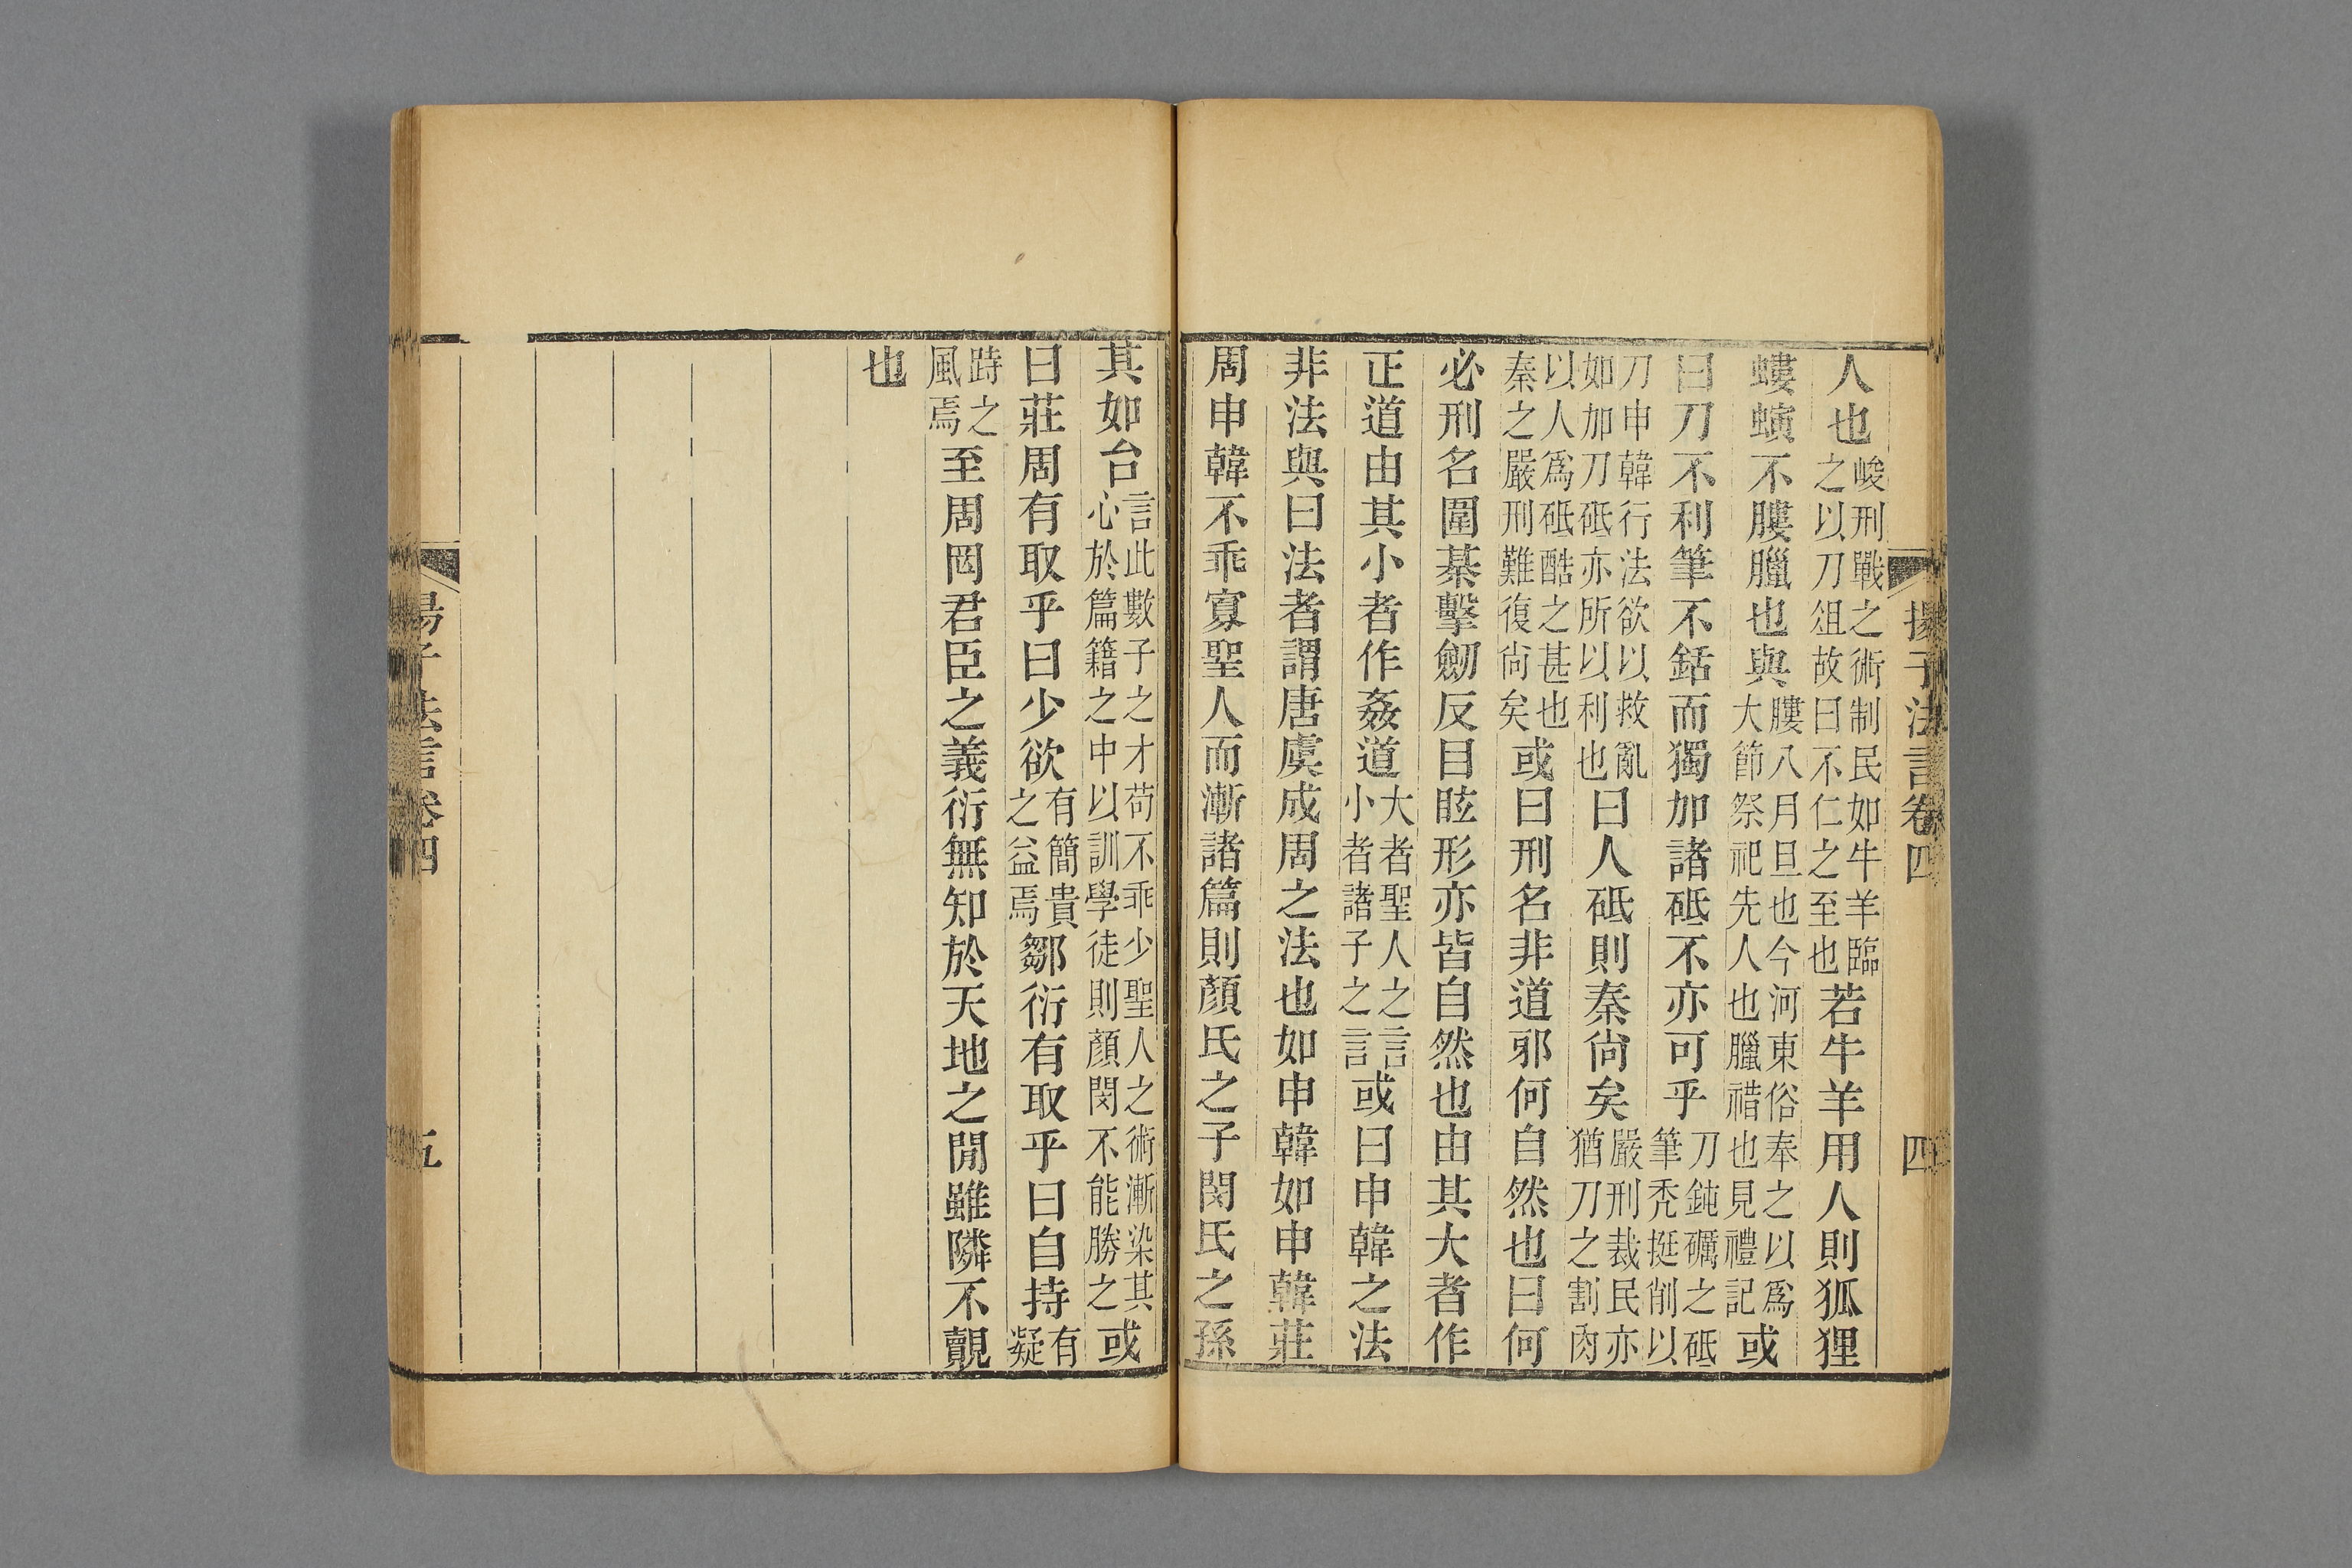 揚子法言卷四 四
人也峻刑戰之術制民如牛羊臨之以刀俎故曰不仁之至也若牛羊用人則狐狸
螻螾不膢臘也與膢八月旦也今河東俗奉之以爲大節祭祀先人也臘䄍也見禮記或
曰刀不利筆不銛而獨加諸砥不亦可乎刀鈍礪之砥筆秃挺削以
刀申韓行法欲以救亂如加刀砥亦所以利也曰人砥則秦尙矣嚴刑裁民亦猶刀之割肉
以人爲砥酷之甚也秦之嚴刑難復尙矣或曰刑名非道邪何自然也曰何
必刑名圍棊擊劒反目眩形亦皆自然也由其大者作
正道由其小者作姦道大者聖人之言小者諸子之言或曰申韓之法
非法與曰法者謂唐虞成周之法也如申韓如申韓莊
周申韓不乖寡聖人而漸諸篇則顏氏之子閔氏之孫
其如台言此數子之才苟不乖少聖人之術漸染其心於篇籍之中以訓學徒則顏閔不能勝之或
曰莊周有取乎曰少欲有簡貴之益焉鄒衍有取乎曰自持有凝
跱之風焉至周罔君臣之義衍無知於天地之閒雖隣不覿
也
揚子法言卷四 五